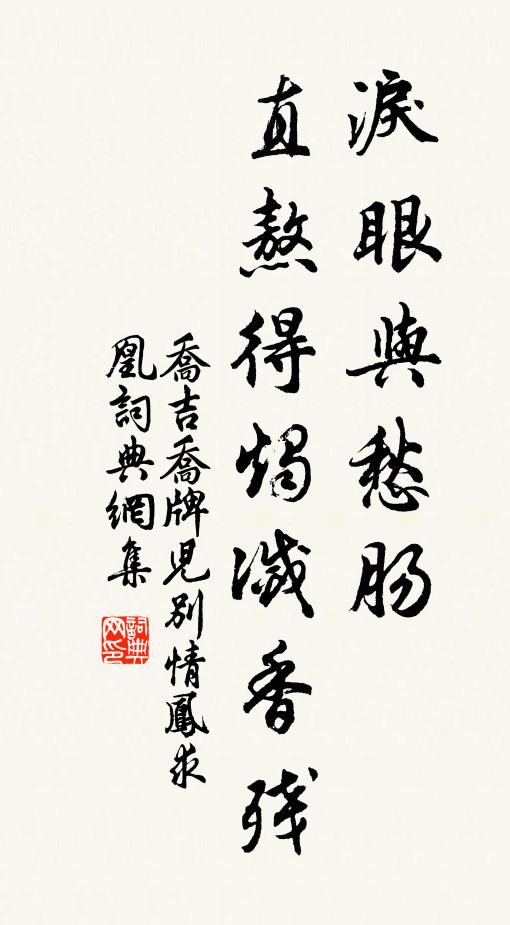 淚眼與愁腸
直熬得燭滅香殘
喬吉喬牌兒別情鳳求
凰詞典網集
詞典
网印